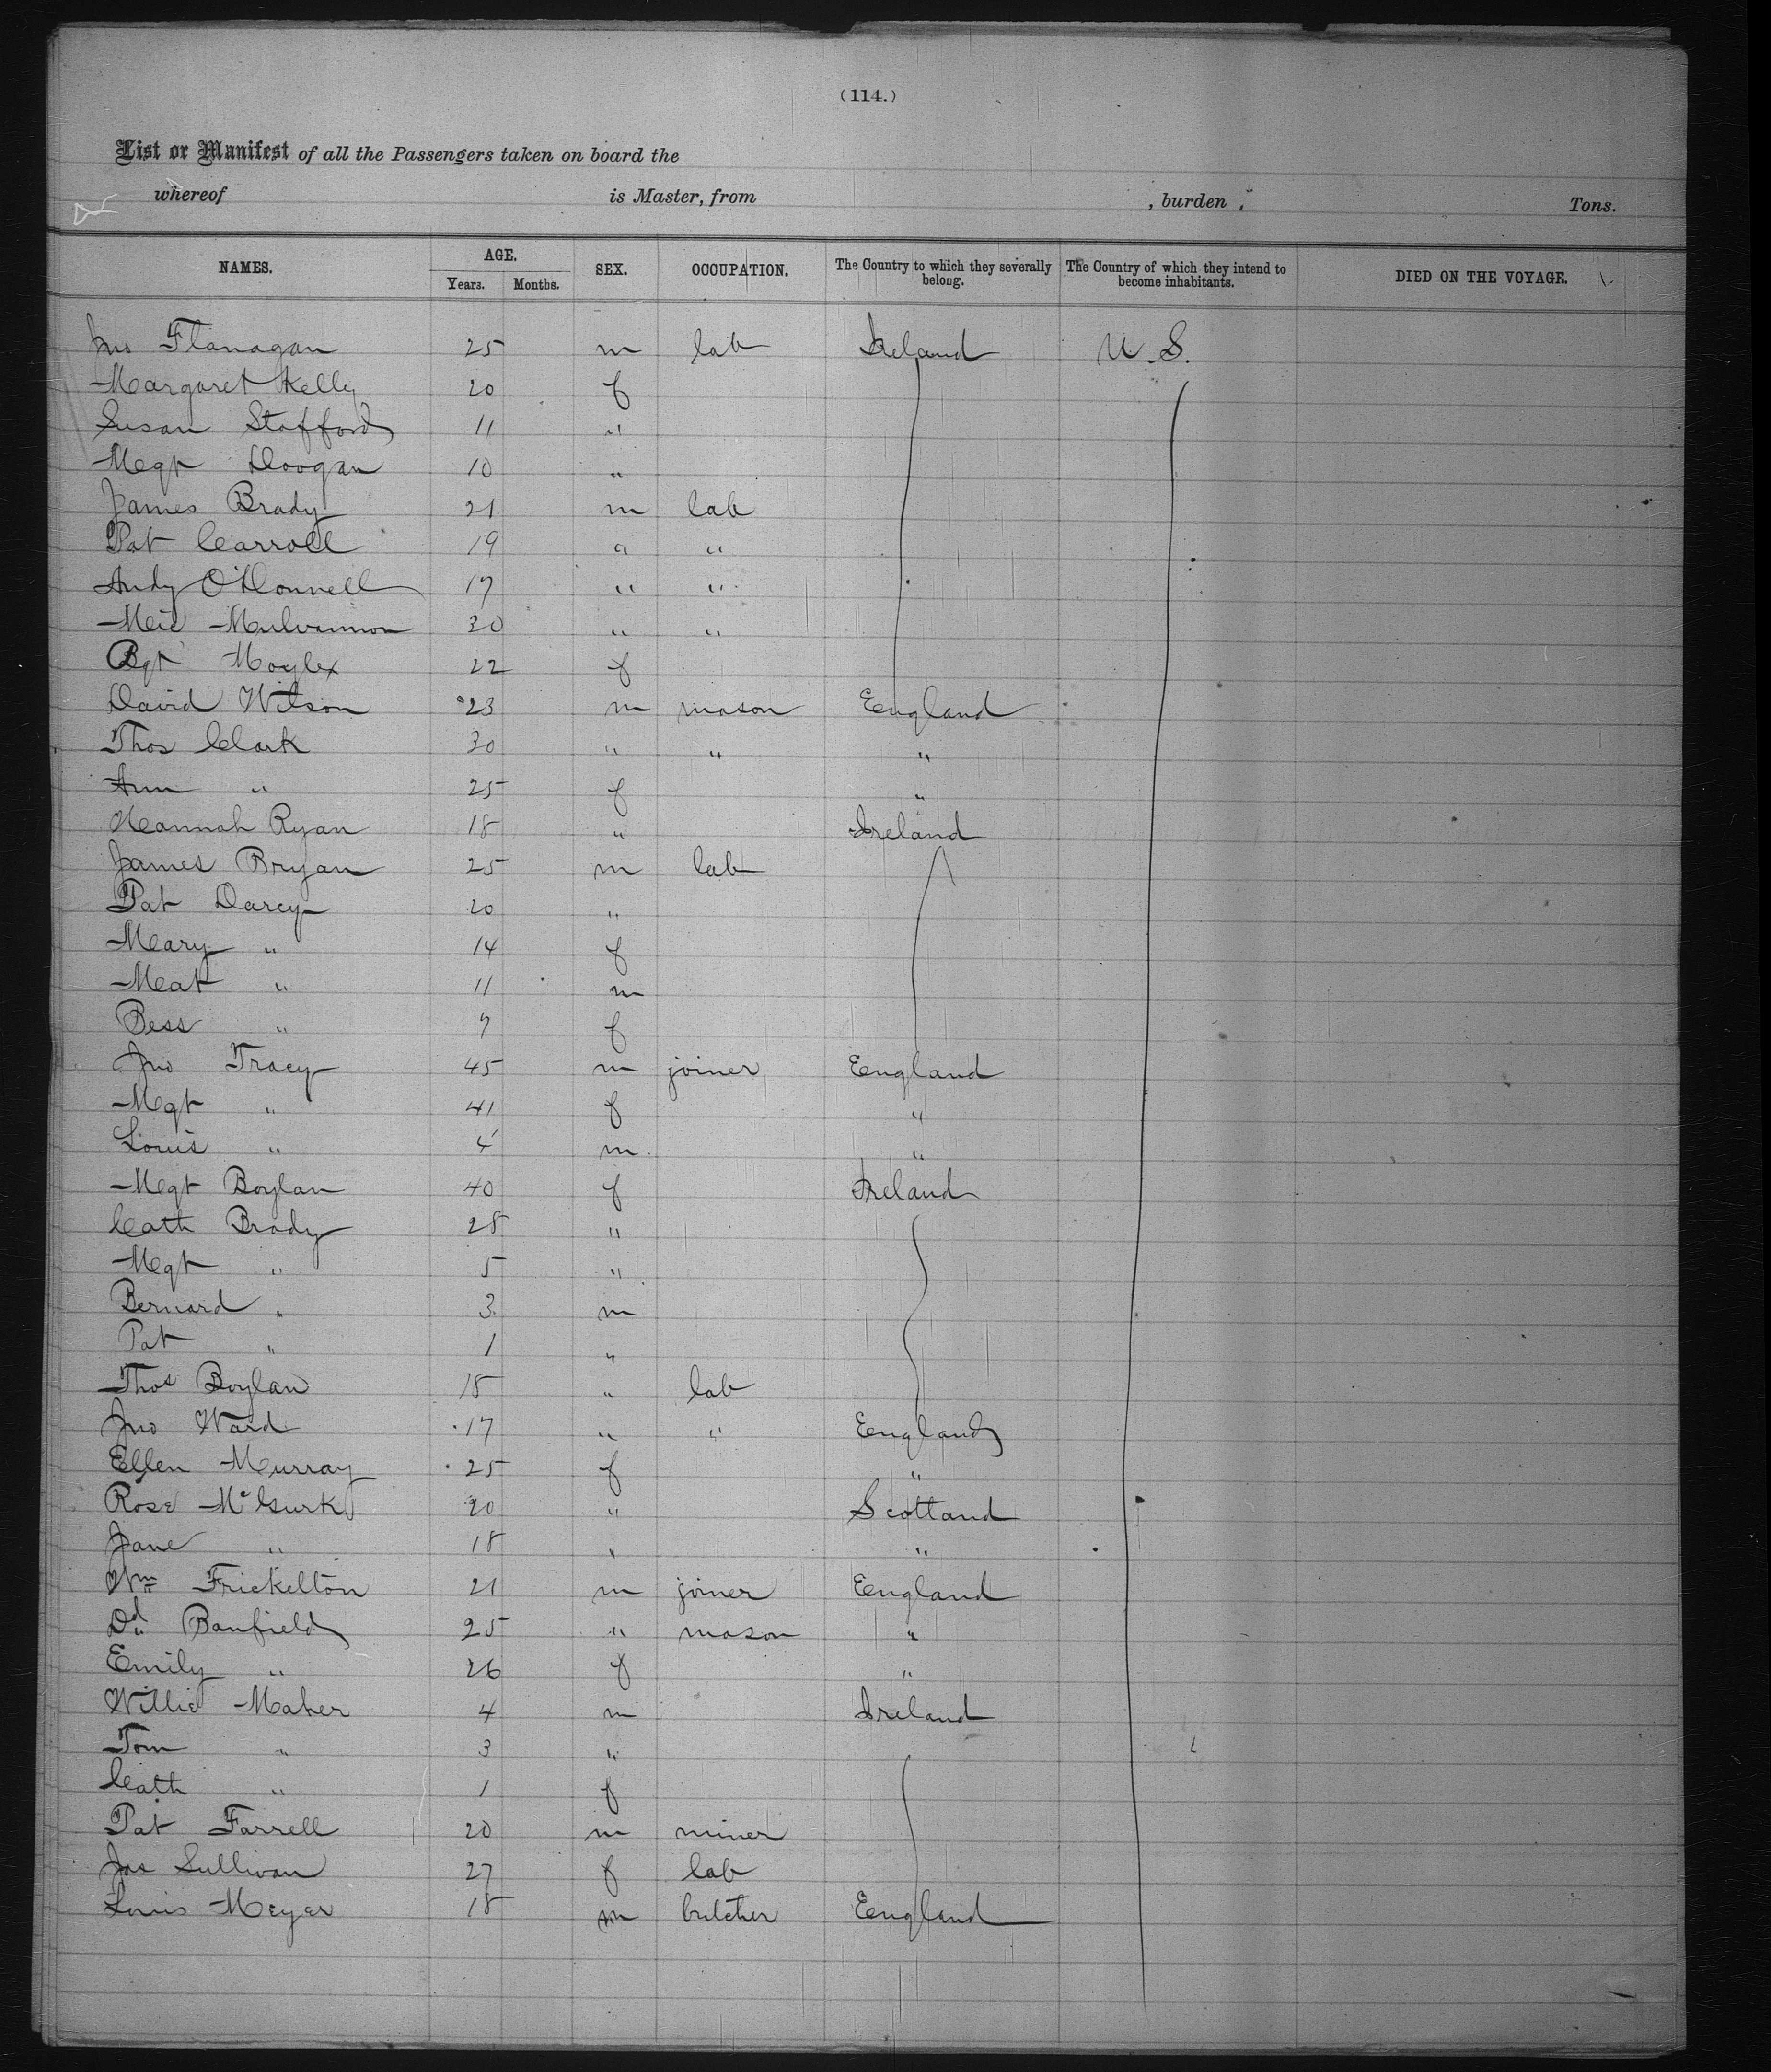 (114.)
List or Manifest of all the Passengers taken on board the
whereof is Master, from , burden , Tons.
NAMES. AGE. Years. Months. SEX. OCCUPATION. The Country to which they severally belong. The Country of which they intend to become inhabitants. DIED ON THE VOYAGE.
Jno Flanagan 25 m lab Ireland U.S.
Margaret Kelly 20 f
Susan Stafford 11 "
Mgt Doogan 10 "
James Brady 21 m lab
Pat Carroll 19 " "
Andy O'Donnell 17 " "
30 " "
Bgt 22 f
David Wilson 23 m mason England
Thos Clark 30 " " "
Ann " 25 f "
Hannah Ryan 18 " Ireland
James Bryan 25 m lab
Pat Darcy 20 "
Mary " 14 f
Mat " 11 m
Bess " 7 f
Jno Tracy 45 m joiner England
Mgt " 41 f "
Louis " 4 m "
Mgt Boylan 40 f Ireland
Cath Brady 28 "
Mgt " 5 "
Bernard " 3 m
Pat " 1 "
Thos Boylan 18 " lab
Jno Ward 17 " " England
Ellen Murray 25 f "
Rose McGurk 20 " Scotland
Jane " 18 " "
Wm Frickelton 21 m joiner England
Dd Banfield 25 " mason "
Emily " 26 f "
Willie Maher 4 m Ireland
Tom " 3 "
Cath " 1 f
Pat Farrell 20 m miner
Jas Sullivan 27 f lab
Louis Meyer 18 m butcher England